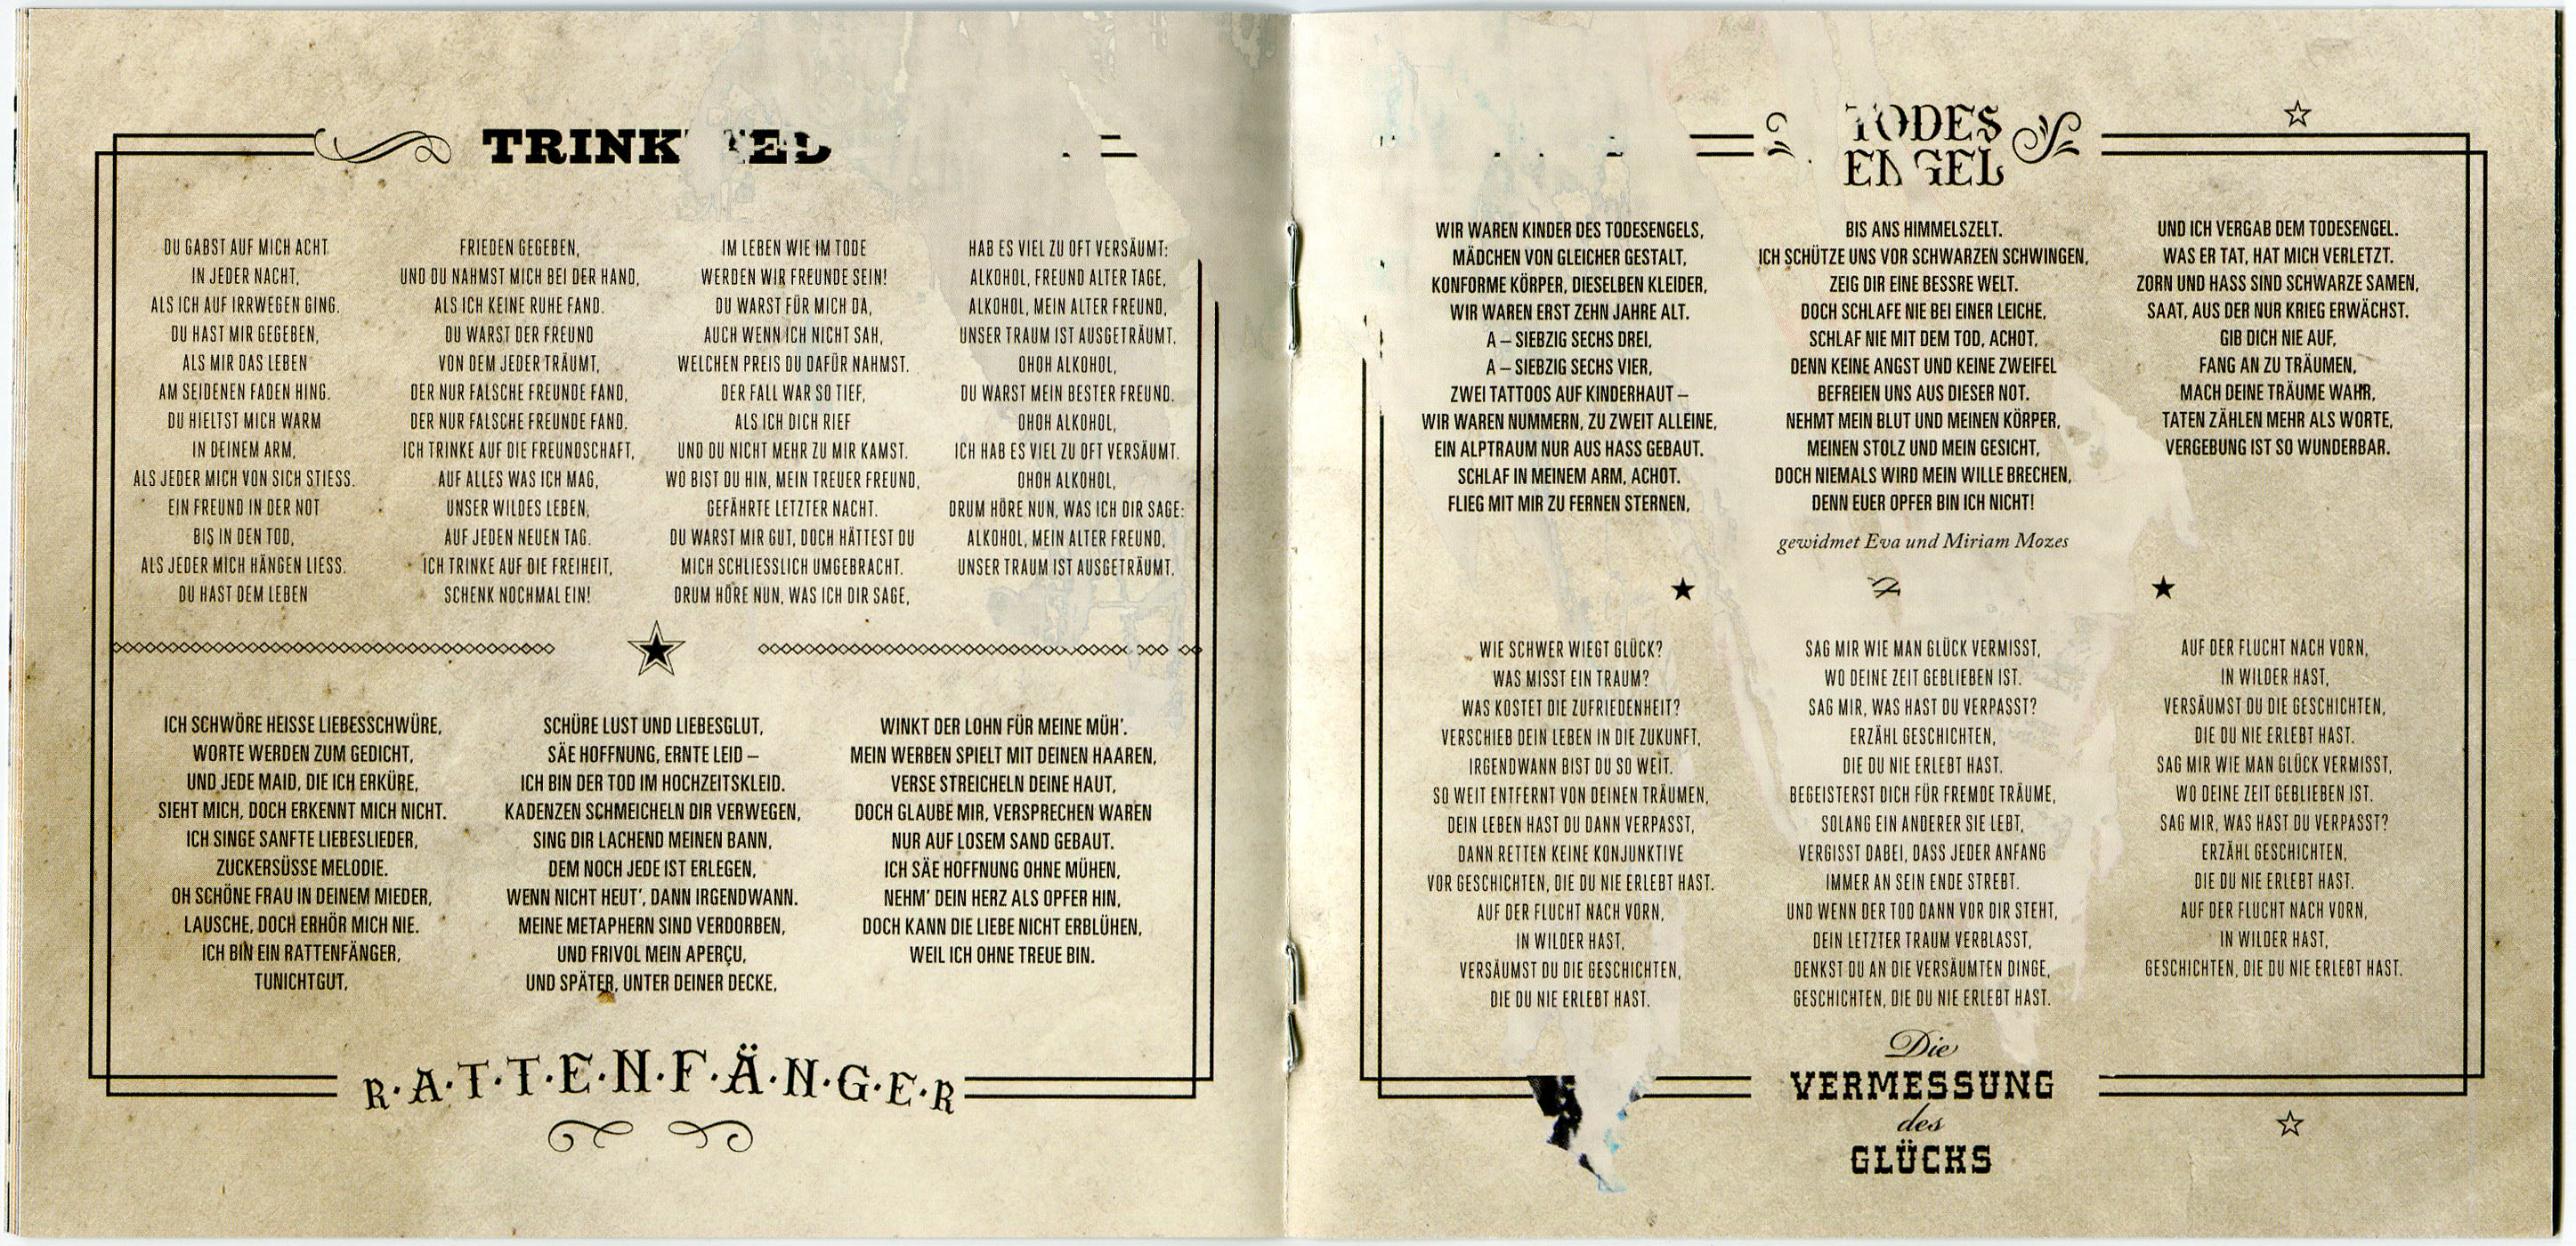 TRINKLIED
DU GABST AUF MICH ACHT
IN JEDER NACHT,
ALS ICH AUF IRRWEGEN GING.
DU HAST MIR GEGEBEN,
ALS MIR DAS LEBEN
AM SEIDENEN FADEN HING.
DU HIELTST MICH WARM
IN DEINEM ARM,
ALS JEDER MICH VON SICH STIESS.
EIN FREUND IN DER NOT
BIS IN DEN TOD,
ALS JEDER MICH HÄNGEN LIESS.
DU HAST DEM LEBEN
FRIEDEN GEGEBEN,
UND DU NAHMST MICH BEI DER HAND,
ALS ICH KEINE RUHE FAND.
DU WARST DER FREUND
VON DEM JEDER TRÄUMT,
DER NUR FALSCHE FREUNDE FAND,
DER NUR FALSCHE FREUNDE FAND.
ICH TRINKE AUF DIE FREUNDSCHAFT,
AUF ALLES WAS ICH MAG,
UNSER WILDES LEBEN,
AUF JEDEN NEUEN TAG.
ICH TRINKE AUF DIE FREIHEIT,
SCHENK NOCHMAL EIN!
IM LEBEN WIE IM TODE
WERDEN WIR FREUNDE SEIN!
DU WARST FÜR MICH DA,
AUCH WENN ICH NICHT SAH,
WELCHEN PREIS DU DAFÜR NAHMST.
DER FALL WAR SO TIEF,
ALS ICH DICH RIEF
UND DU NICHT MEHR ZU MIR KAMST.
WO BIST DU HIN, MEIN TREUER FREUND,
GEFÄHRTE LETZTER NACHT.
DU WARST MIR GUT, DOCH HÄTTEST DU
MICH SCHLIESSLICH UMGEBRACHT.
DRUM HÖRE NUN, WAS ICH DIR SAGE,
HAB ES VIEL ZU OFT VERSÄUMT:
ALKOHOL, FREUND ALTER TAGE,
ALKOHOL, MEIN ALTER FREUND,
UNSER TRAUM IST AUSGETRÄUMT.
OHOH ALKOHOL,
DU WARST MEIN BESTER FREUND.
OHOH ALKOHOL,
ICH HAB ES VIEL ZU OFT VERSÄUMT.
OHOH ALKOHOL,
DRUM HÖRE NUN, WAS ICH DIR SAGE:
ALKOHOL, MEIN ALTER FREUND,
UNSER TRAUM IST AUSGETRÄUMT.
ICH SCHWÖRE HEISSE LIEBESSCHWÜRE,
WORTE WERDEN ZUM GEDICHT,
UND JEDE MAID, DIE ICH ERKÜRE,
SIEHT MICH, DOCH ERKENNT MICH NICHT.
ICH SINGE SANFTE LIEBESLIEDER,
ZUCKERSÜSSE MELODIE.
OH SCHÖNE FRAU IN DEINEM MIEDER,
LAUSCHE, DOCH ERHÖR MICH NIE.
ICH BIN EIN RATTENFÄNGER,
TUNICHTGUT,
SCHÜRE LUST UND LIEBESGLUT,
SÄE HOFFNUNG, ERNTE LEID –
ICH BIN DER TOD IM HOCHZEITSKLEID.
KADENZEN SCHMEICHELN DIR VERWEGEN,
SING DIR LACHEND MEINEN BANN,
DEM NOCH JEDE IST ERLEGEN,
WENN NICHT HEUT', DANN IRGENDWANN.
MEINE METAPHERN SIND VERDORBEN,
UND FRIVOL MEIN APERÇU,
UND SPÄTER, UNTER DEINER DECKE,
WINKT DER LOHN FÜR MEINE MÜH'.
MEIN WERBEN SPIELT MIT DEINEN HAAREN,
VERSE STREICHELN DEINE HAUT,
DOCH GLAUBE MIR, VERSPRECHEN WAREN
NUR AUF LOSEM SAND GEBAUT.
ICH SÄE HOFFNUNG OHNE MÜHEN,
NEHM' DEIN HERZ ALS OPFER HIN,
DOCH KANN DIE LIEBE NICHT ERBLÜHEN,
WEIL ICH OHNE TREUE BIN.
R·A·T·T·E·N·F·Ä·N·G·E·R
TODES
ENGEL
WIR WAREN KINDER DES TODESENGELS,
MÄDCHEN VON GLEICHER GESTALT,
KONFORME KÖRPER, DIESELBEN KLEIDER,
WIR WAREN ERST ZEHN JAHRE ALT.
A – SIEBZIG SECHS DREI,
A – SIEBZIG SECHS VIER,
ZWEI TATTOOS AUF KINDERHAUT –
WIR WAREN NUMMERN, ZU ZWEIT ALLEINE,
EIN ALPTRAUM NUR AUS HASS GEBAUT.
SCHLAF IN MEINEM ARM, ACHOT.
FLIEG MIT MIR ZU FERNEN STERNEN,
BIS ANS HIMMELSZELT.
ICH SCHÜTZE UNS VOR SCHWARZEN SCHWINGEN,
ZEIG DIR EINE BESSRE WELT.
DOCH SCHLAFE NIE BEI EINER LEICHE,
SCHLAF NIE MIT DEM TOD, ACHOT,
DENN KEINE ANGST UND KEINE ZWEIFEL
BEFREIEN UNS AUS DIESER NOT.
NEHMT MEIN BLUT UND MEINEN KÖRPER,
MEINEN STOLZ UND MEIN GESICHT,
DOCH NIEMALS WIRD MEIN WILLE BRECHEN,
DENN EUER OPFER BIN ICH NICHT!
UND ICH VERGAB DEM TODESENGEL.
WAS ER TAT, HAT MICH VERLETZT.
ZORN UND HASS SIND SCHWARZE SAMEN,
SAAT, AUS DER NUR KRIEG ERWÄCHST.
GIB DICH NIE AUF,
FANG AN ZU TRÄUMEN,
MACH DEINE TRÄUME WAHR,
TATEN ZÄHLEN MEHR ALS WORTE,
VERGEBUNG IST SO WUNDERBAR.
gewidmet Eva und Miriam Mozes
WIE SCHWER WIEGT GLÜCK?
WAS MISST EIN TRAUM?
WAS KOSTET DIE ZUFRIEDENHEIT?
VERSCHIEB DEIN LEBEN IN DIE ZUKUNFT,
IRGENDWANN BIST DU SO WEIT.
SO WEIT ENTFERNT VON DEINEN TRÄUMEN,
DEIN LEBEN HAST DU DANN VERPASST,
DANN RETTEN KEINE KONJUNKTIVE
VOR GESCHICHTEN, DIE DU NIE ERLEBT HAST.
AUF DER FLUCHT NACH VORN,
IN WILDER HAST,
VERSÄUMST DU DIE GESCHICHTEN,
DIE DU NIE ERLEBT HAST.
SAG MIR WIE MAN GLÜCK VERMISST,
WO DEINE ZEIT GEBLIEBEN IST.
SAG MIR, WAS HAST DU VERPASST?
ERZÄHL GESCHICHTEN,
DIE DU NIE ERLEBT HAST.
BEGEISTERST DICH FÜR FREMDE TRÄUME,
SOLANG EIN ANDERER SIE LEBT,
VERGISST DABEI, DASS JEDER ANFANG
IMMER AN SEIN ENDE STREBT.
UND WENN DER TOD DANN VOR DIR STEHT,
DEIN LETZTER TRAUM VERBLASST,
DENKST DU AN DIE VERSÄUMTEN DINGE,
GESCHICHTEN, DIE DU NIE ERLEBT HAST.
AUF DER FLUCHT NACH VORN,
IN WILDER HAST,
VERSÄUMST DU DIE GESCHICHTEN,
DIE DU NIE ERLEBT HAST.
SAG MIR WIE MAN GLÜCK VERMISST,
WO DEINE ZEIT GEBLIEBEN IST.
SAG MIR, WAS HAST DU VERPASST?
ERZÄHL GESCHICHTEN,
DIE DU NIE ERLEBT HAST.
AUF DER FLUCHT NACH VORN,
IN WILDER HAST,
GESCHICHTEN, DIE DU NIE ERLEBT HAST.
Die
VERMESSUNG
des
GLÜCKS